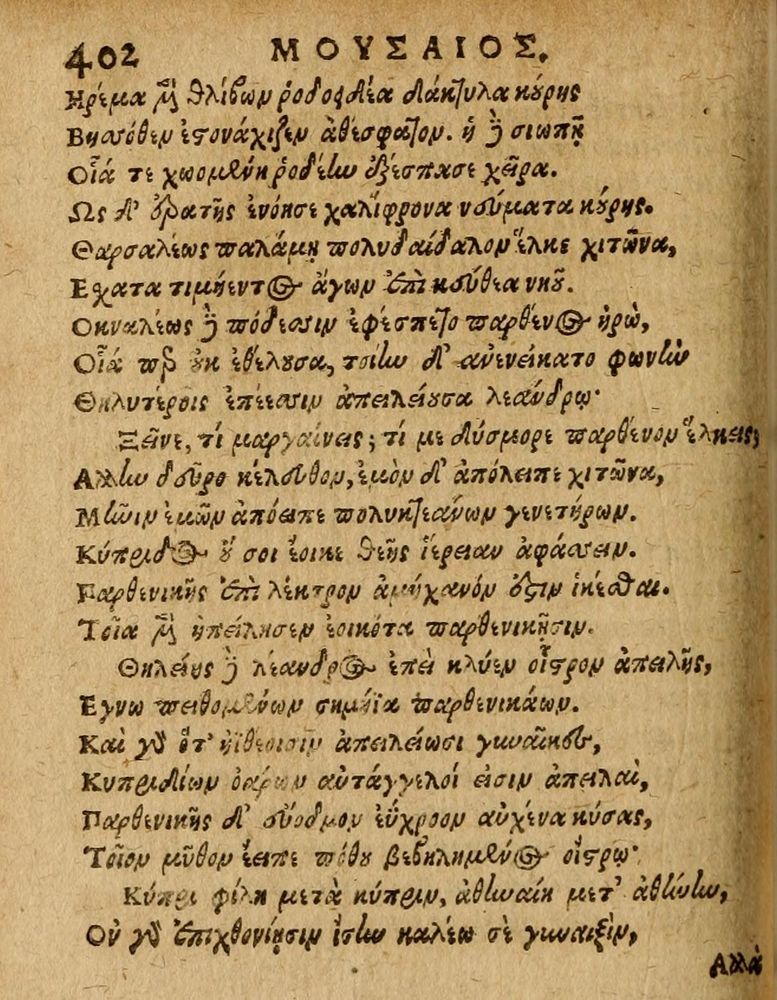 402 ΜΟΥΣΑΙΟΣ.
Ηρέμα μὲν θλίβων ῥοδοειδέα δάκτυλα κούρης
Βυσσόθεν ἐστονάχιζεν ἀθέσφατον. ἡ δὲ σιωπῇ
Οἷά τε χωομένη ῥοδέην ἐξέσπασε χεῖρα.
Ως δ' ἐρατῆς ἐνόησε χαλίφρονα νεύματα κούρης.
Θαρσαλέως παλάμῃ πολυδαίδαλον ἕλκε χιτῶνα,
Εχατα τιμήεντος ἄγων ἐπὶ κεύθεα νηοῦ.
Οκναλέως δὲ πόδεσσιν ἐφέσπετο παρθένος ἡρὼ,
Οἷά περ οὐκ ἐθέλουσα, τοίην δ' ἀνενείκατο φωνὴν
Θηλυτέροις ἐπέεσσιν ἀπειλείουσα λεάνδρῳ·
Ξεῖνε, τί μαργαίνεις; τί με δύσμορε παρθένον ἕλκεις;
Αλλην δεῦρο κέλευθον, ἐμὸν δ' ἀπόλειπε χιτῶνα,
Μῆνιν ἐμῶν ἀπόειπε πολυκτεάνων γενετήρων.
Κύπριδος οὔ σοι ἔοικε θεῆς ἱέρειαν ἀφάσσειν.
Παρθενικῆς ἐπὶ λέκτρον ἀμήχανόν ἐστιν ἱκέσθαι.
Τοῖα μὲν ἠπείλησεν ἐοικότα παρθενικῇσιν.
Θηλείης δὲ λέανδρος ἐπεὶ κλύεν οἶστρον ἀπειλῆς,
Εγνω πειθομένων σημήϊα παρθενικάων.
Καὶ γὰρ ὅτ' ἠϊθέοισιν ἀπειλείωσι γυναῖκες,
Κυπριδίων ὀάρων αὐτάγγελοί εἰσιν ἀπειλαὶ,
Παρθενικῆς δ' εὔοδμον ἐΰχροον αὐχένα κύσας,
Τοῖον μῦθον ἔειπε πόθου βεβλημένος οἴστρῳ·
Κύπρι φίλη μετὰ κύπριν, ἀθηναίη μετ' ἀθήνην,
Οὐ γὰρ ἐπιχθονίῃσιν ἴσην καλέω σὲ γυναιξὶν,
Αλλὰ